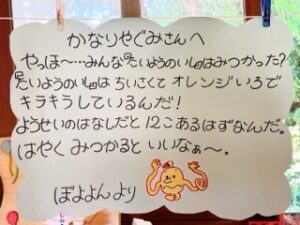 かなりやぐみさんへ
やっほ〜…みんなたいようのいしはみつかった?
たいようのいしは ちいさくて オレンジいろで
キラキラしているんだ!
ようせいのはなしだと 12こあるはずなんだ。
はやく みつかると いいなぁ〜。
ぽよよんより